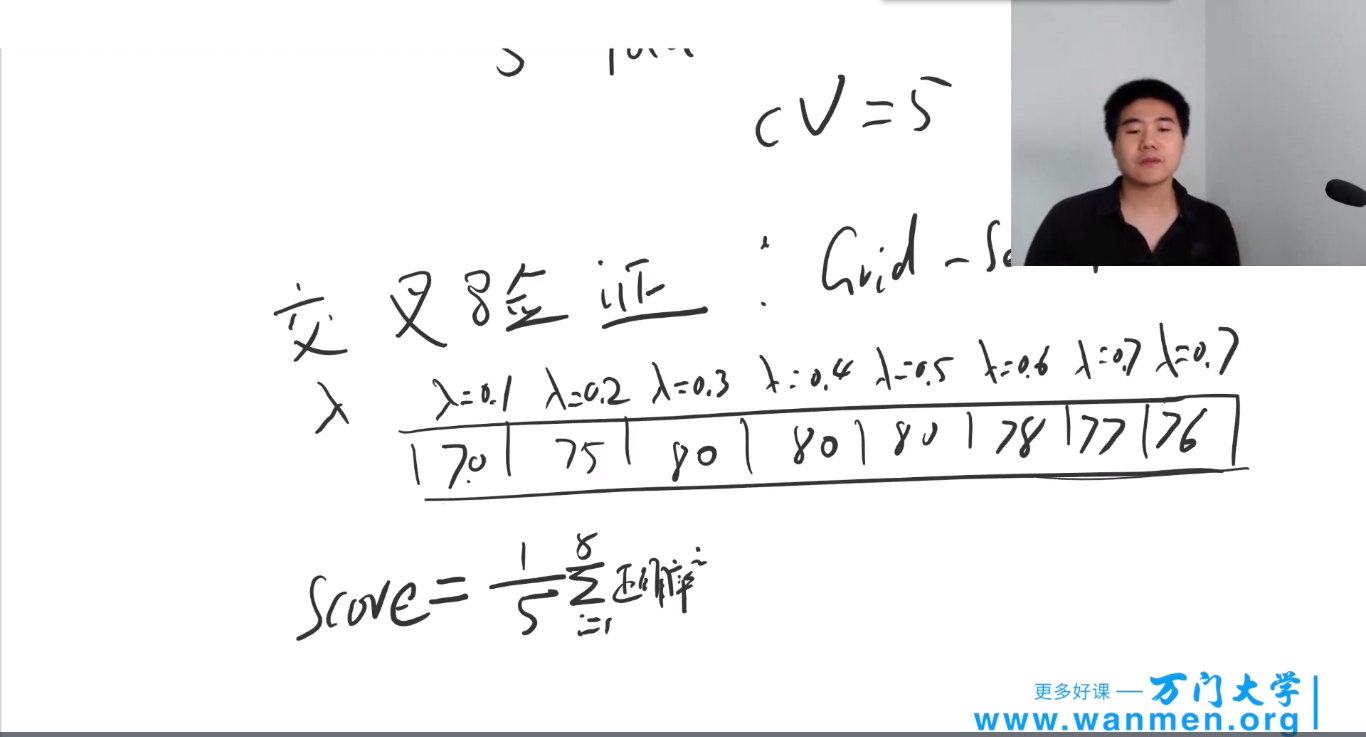 5
CV=5
交叉验证：Grid-Se
λ λ=0.1 λ=0.2 λ=0.3 λ=0.4 λ=0.5 λ=0.6 λ=0.7 λ=0.7
70 75 80 80 80 78 77 76
Score= 1/5 8∑i=1 正确率i
更多好课 — 万门大学
www.wanmen.org